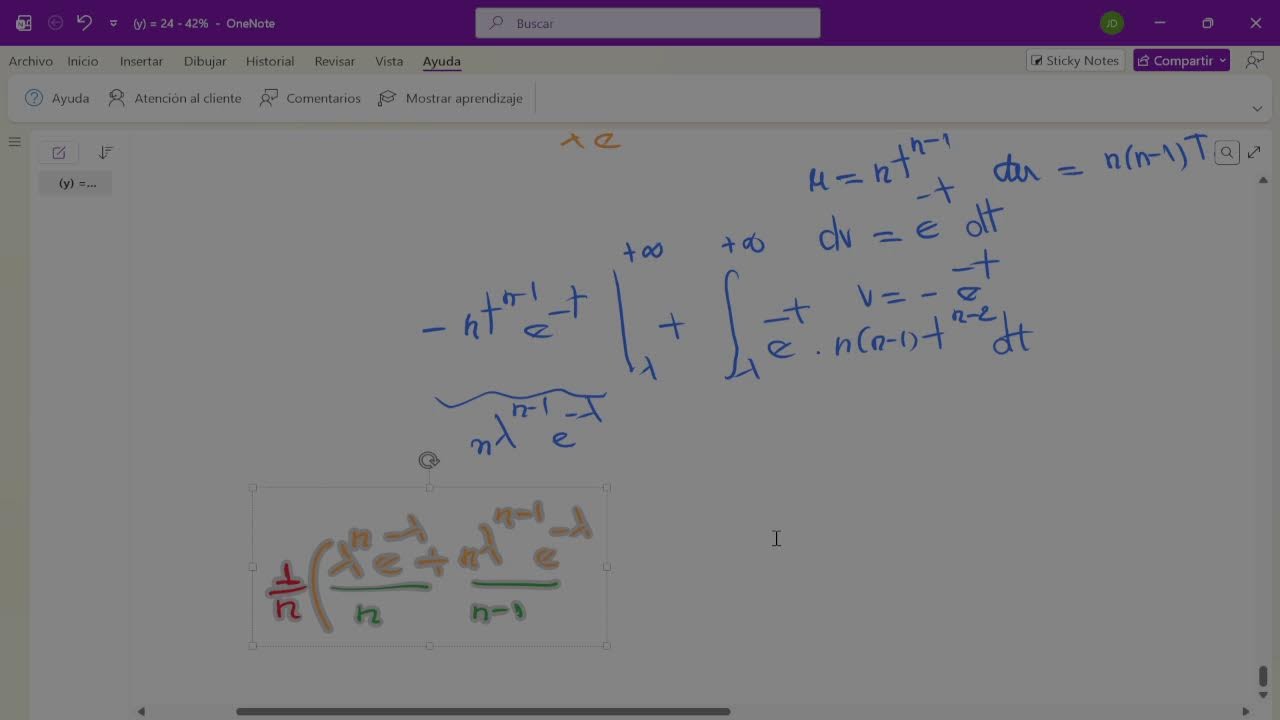 (y) = 24 - 42% - OneNote
Buscar
JD
Archivo Inicio Insertar Dibujar Historial Revisar Vista Ayuda
Sticky Notes Compartir
Ayuda Atención al cliente Comentarios Mostrar aprendizaje
(y) =...
λ e
μ = n t^{n-1} du = n(n-1) T
dv = e^{-t} dt
v = - e^{-t}
- n t^{n-1} e^{-t} |_λ^{+∞} + ∫_λ^{+∞} e^{-t} . n(n-1) t^{n-2} dt
n λ^{n-1} e^{-λ}
1/n ( λ^n e^{-λ} + n λ^{n-1} e^{-λ}
n n-1